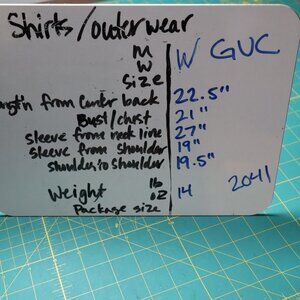 Shirts/outerwear
M
W W GUC
Size
length from center back 22.5"
Bust/chest 21"
sleeve from neck line 27"
sleeve from shoulder 19"
shoulder to shoulder 19.5"
lb
Weight oz 14 2041
Package size